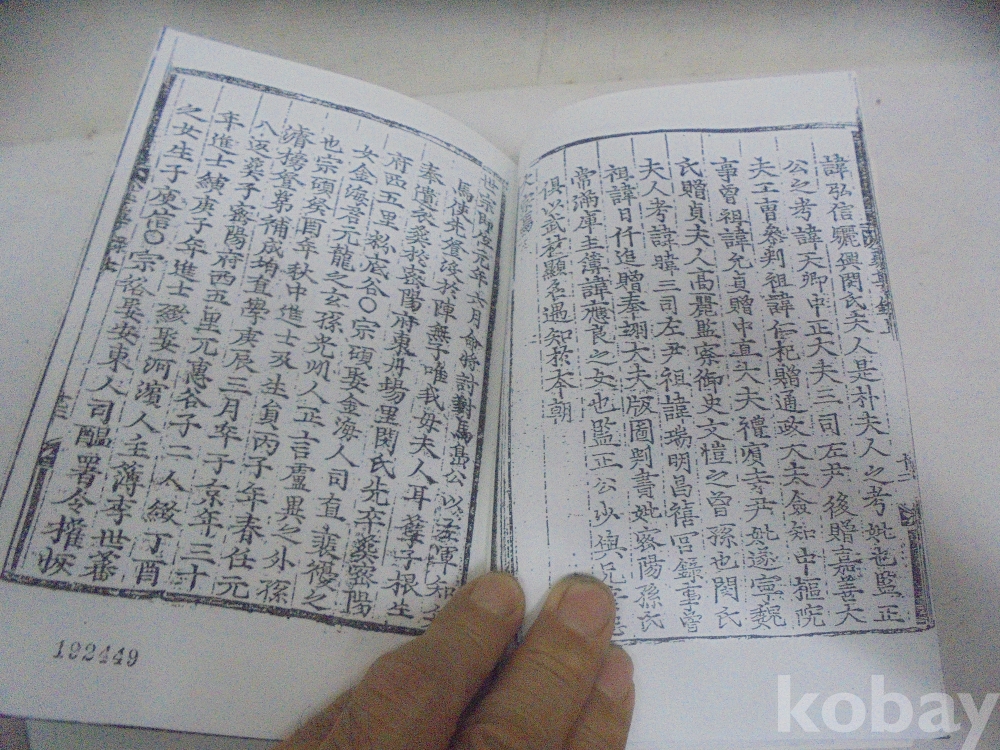 諱弘信驪興閔氏夫人是朴夫人之考妣也監正
公之考諱天卿中正大夫三司左尹後贈嘉善大
夫工曹參判祖諱仁杞贈通政大夫僉知中樞院
事曾祖諱允貞贈中直大夫禮賓寺尹妣遂寧魏
氏贈貞夫人高麗監察御史文愷之曾孫也閔氏
夫人考諱暐三司左尹祖諱瑞明昌禧宮錄事曾
祖諱日仟進贈奉翊大夫版圖判書妣密陽孫氏
常滿庫主簿諱應良之女也監正公少與兄
俱以武藝顯名遇知於本朝
世宗即位元年六月命將討對馬島公以左軍
馬使先登沒於陣無子唯我母夫人耳 子根生
奉遺衣葬於密陽府東丹場里閔氏先卒葬密陽
府西五里私底谷〇宗碩娶金海人司直裵復之
女金海君元龍之玄孫光州人正言盧異之外孫
也宗碩癸酉年秋中進士及生員丙子年春任元
濬榜登第補成均直學庚辰三月年于京年三十
八返葬子密陽府西五里元傳谷子二人緻丁酉
年進士 庚子年進士 娶河濱人主簿李世蕃
之女生子庚信〇宗裕娶安東人司醞署令權恢
192449
kobay